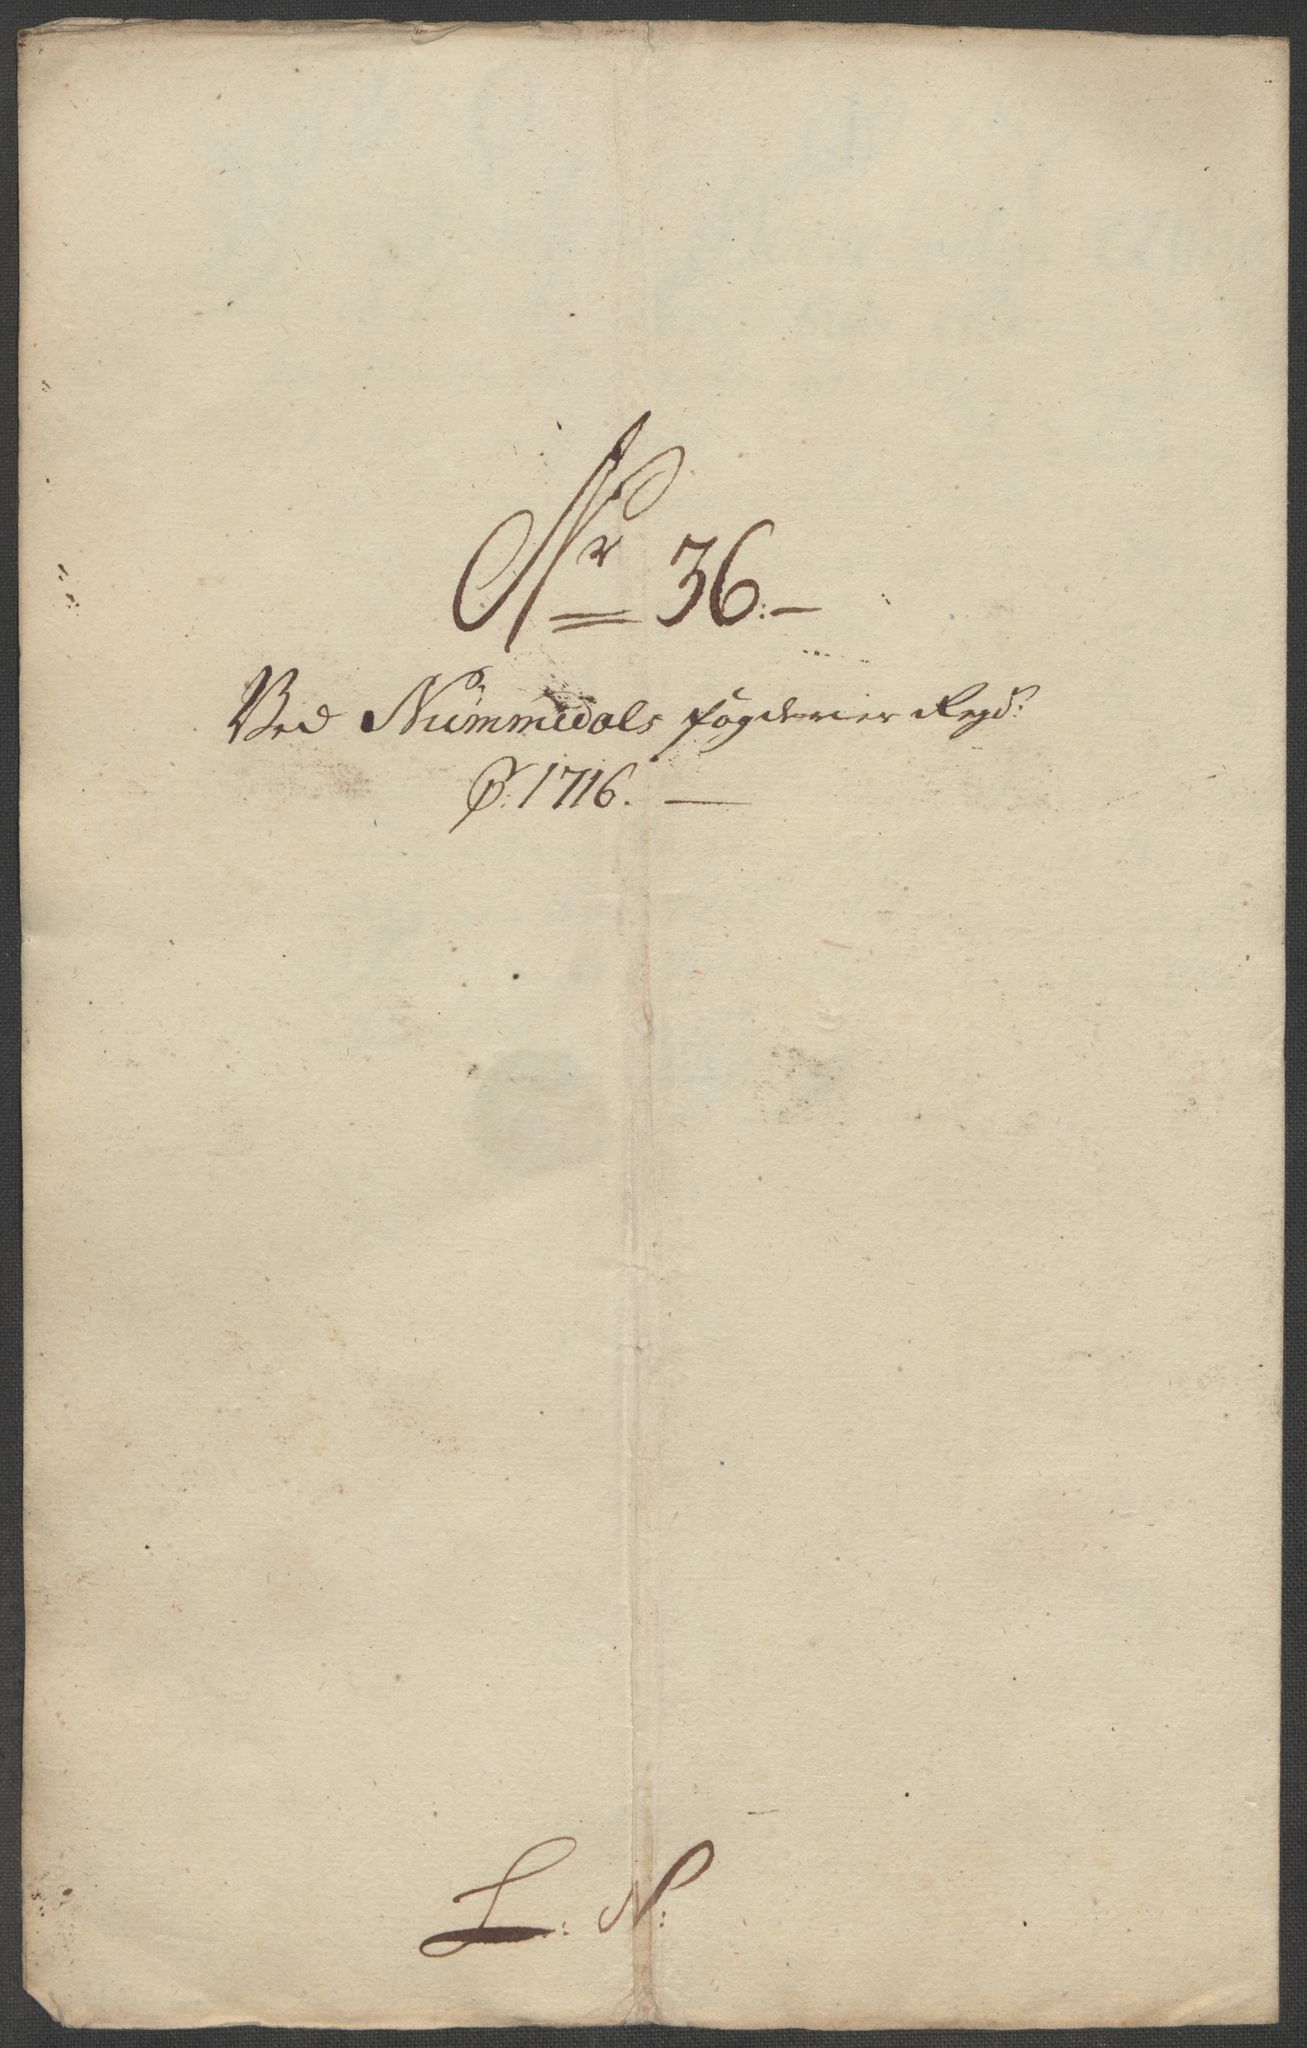 Nr 36:—
Ved Nummedals fogderier Regd:
P: 1716. —
L: N: